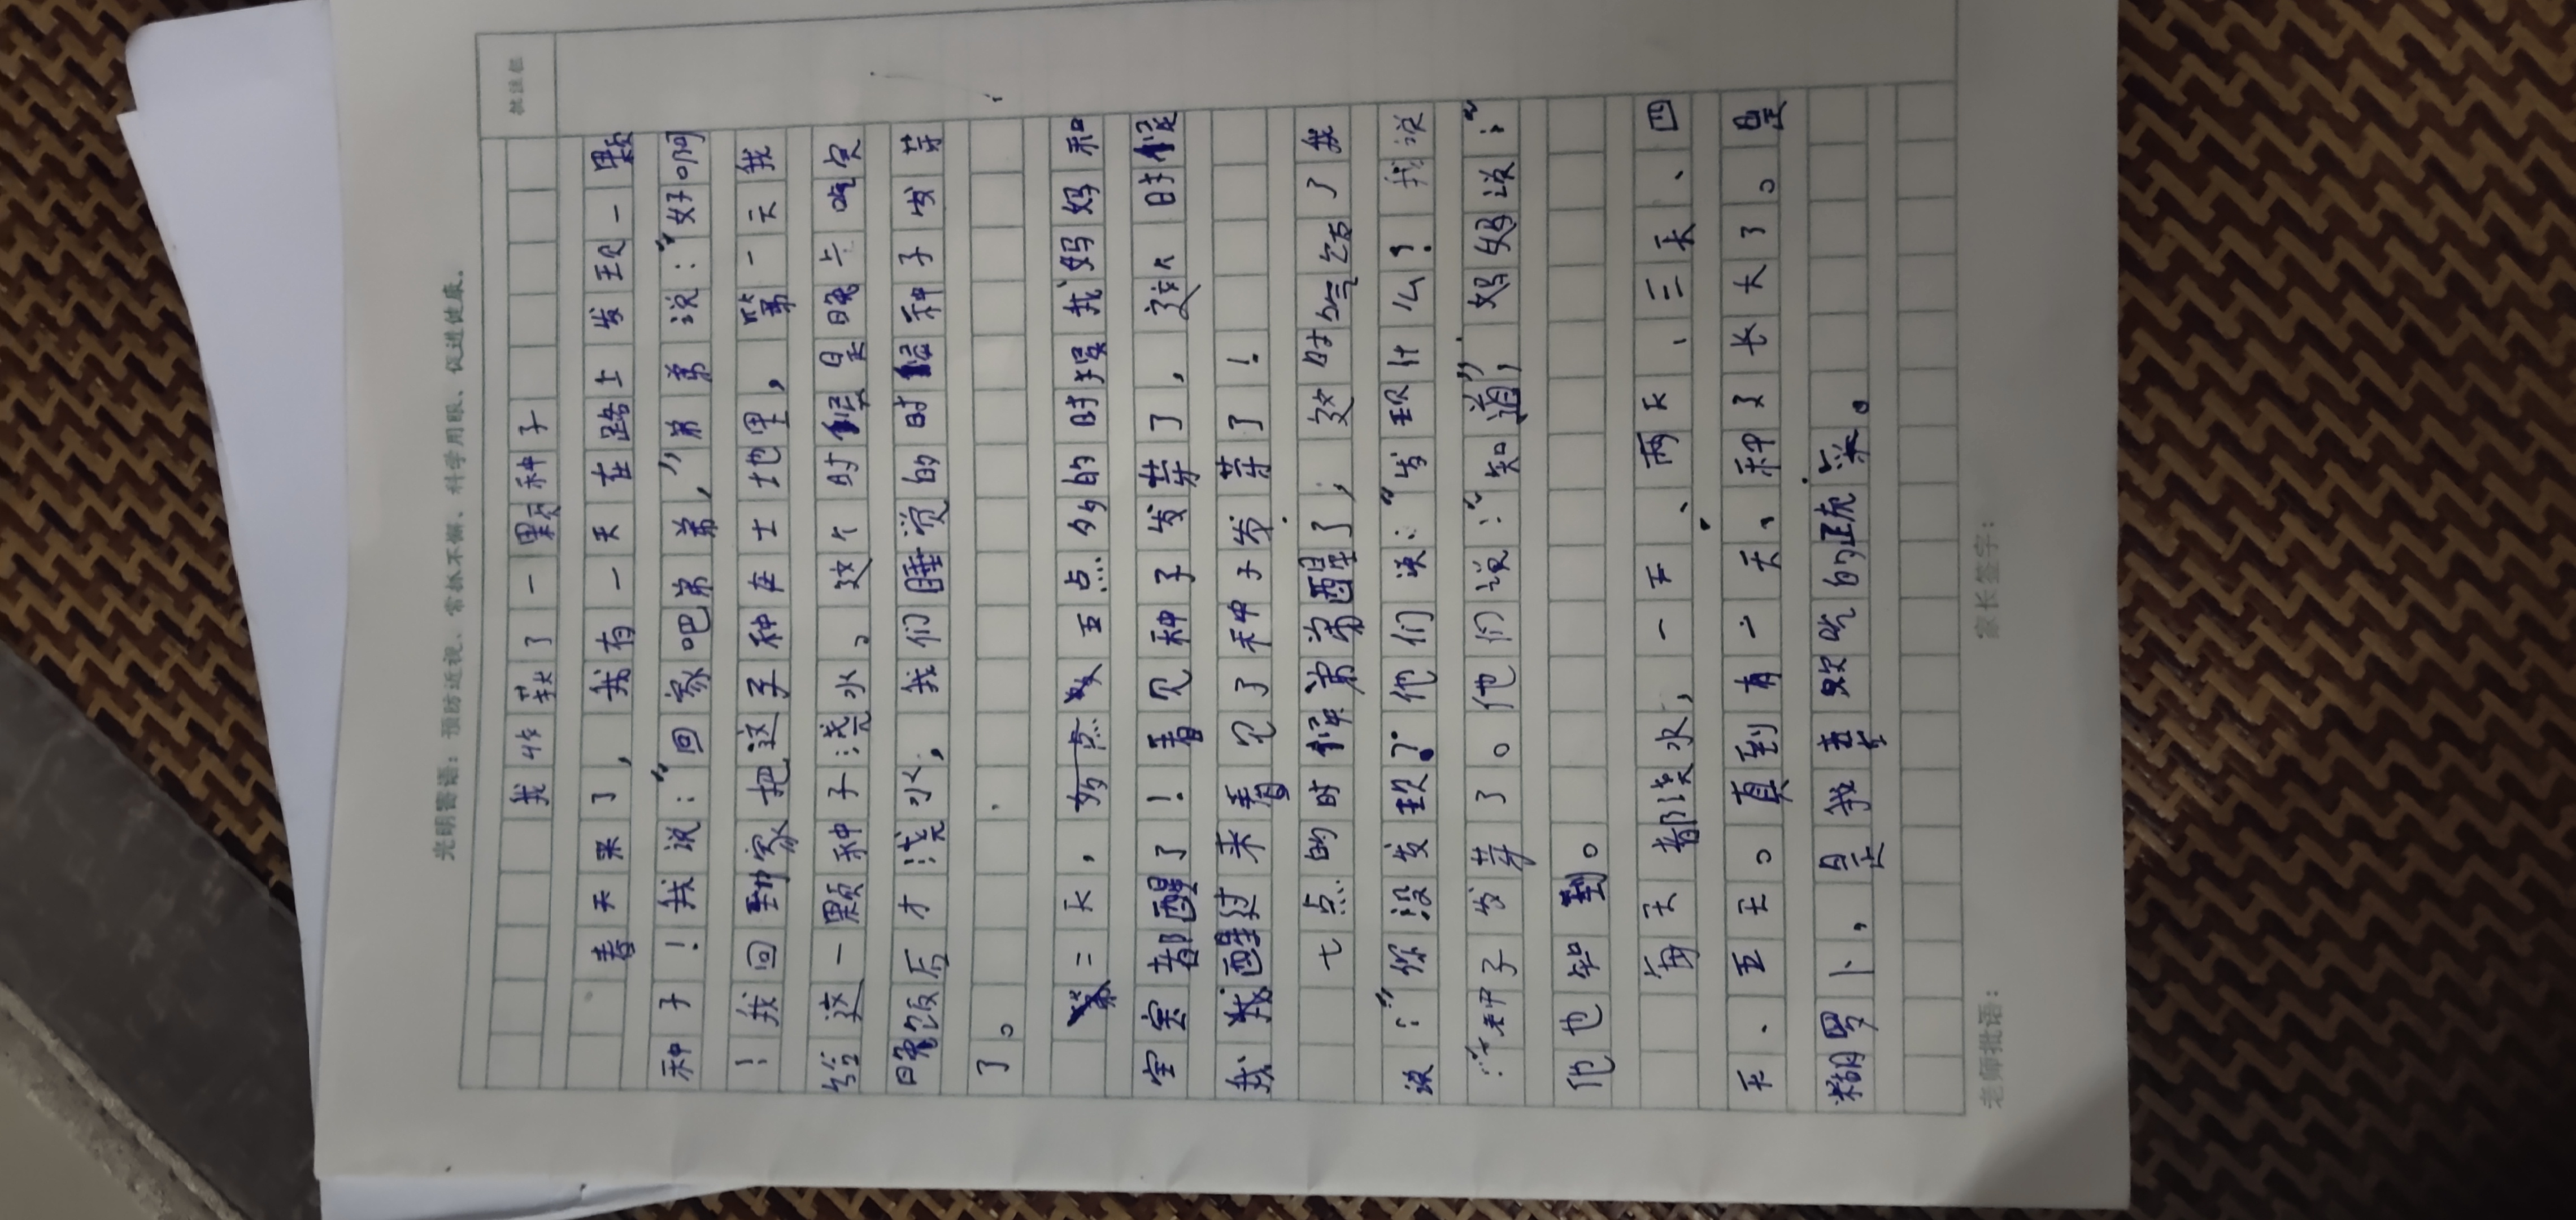 光明寄语：预防近视、常抓不懈、科学用眼、促进健康。
批注栏
我 了一颗种子
春天来了，我有一天在路上发现一颗
种子！我说：“回家吧弟弟，”弟弟说：“好。啊
！我回到家把这子种在土地里，第一天我
给这一颗种子浇水。这个时候是晚上吃完
晚饭后才浇水，我们睡觉的时候种子发芽
了。
二天，五点多的时候我妈妈和
宝宝都醒了！看见种子发芽了，这 时候
我我醒过来看见了种子发芽了！
七点的时候弟弟醒了；这时爸爸了我
说：“你没发现？他们说：“发现什么？我说
：“种子发芽了。他们说：“知道”，妈妈说：“
他也知到。
每天都浇水，一天、两天、三天、四
天、五天。真到有一天、种子长大了。是
糊罗卜，是我 吃的 菜。
老师批语：
家长签字：